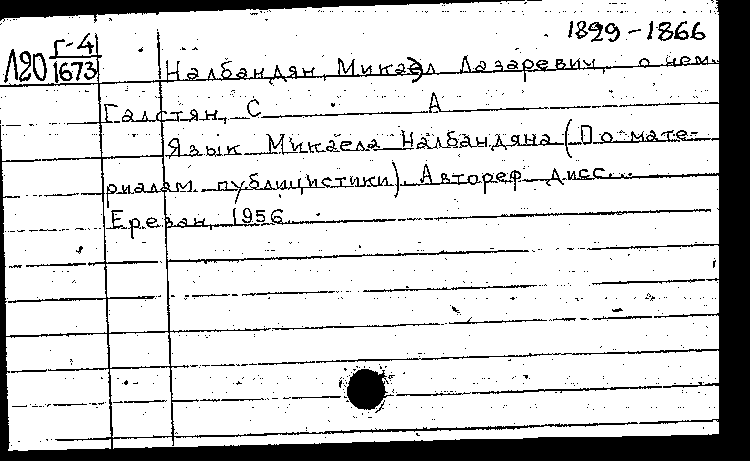 1829-1866
Л20 Г-4
1673
Налбандян, Микаэл Лазаревич, о нем.
Галстян, С А
Язык Микаела Налбандяна (По мате-
риалам публицистики). Автореф дисс...
Ереван, 1956.